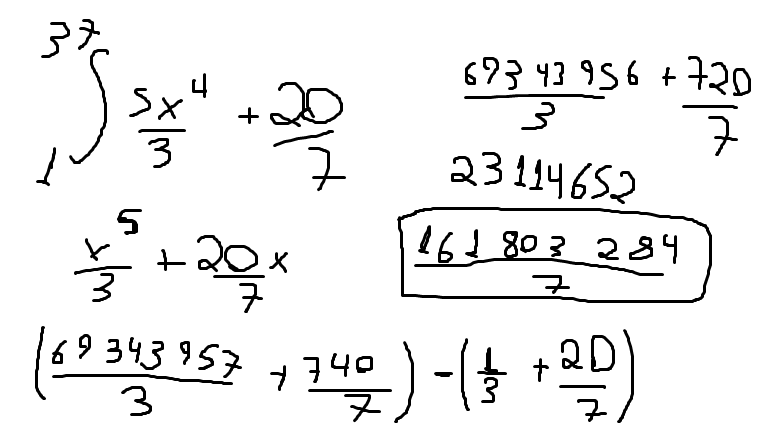 37
∫ 5x⁴/3 + 20/7
1
x⁵/3 + 20x/7
(69343957/3 + 740/7) - (1/3 + 20/7)
69343956/3 + 720/7
23114652
161803284/7